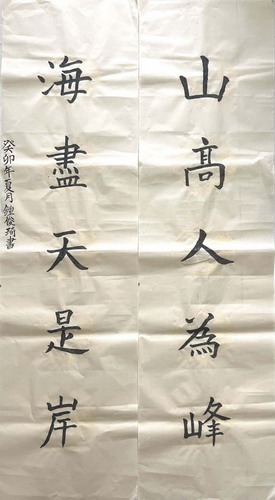 山髙人為峰
海盡天是岸
癸卯年夏月鍾俊琦書